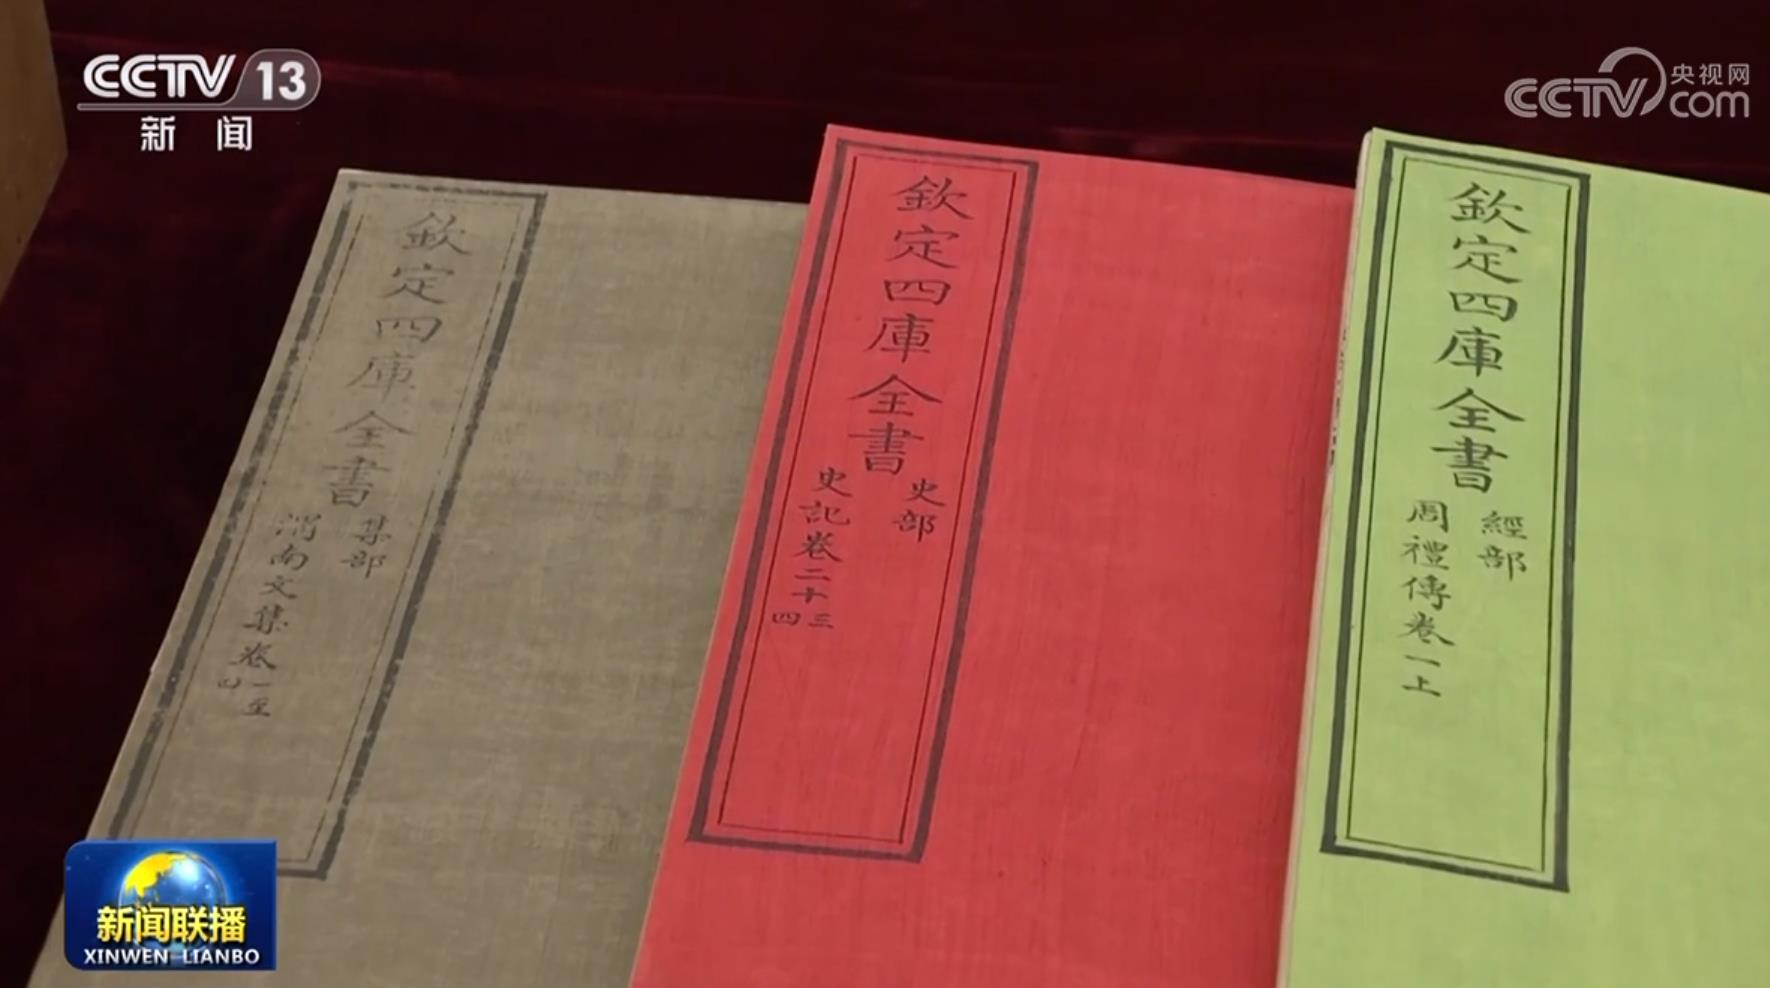 CCTV 13
新闻
央视网
CCTV com
欽定四庫全書
集部
渭南文集卷一至
四
欽定四庫全書
史部
史記卷二十三
四
欽定四庫全書
經部
周禮傳卷一上
新闻联播
XINWEN LIANBO